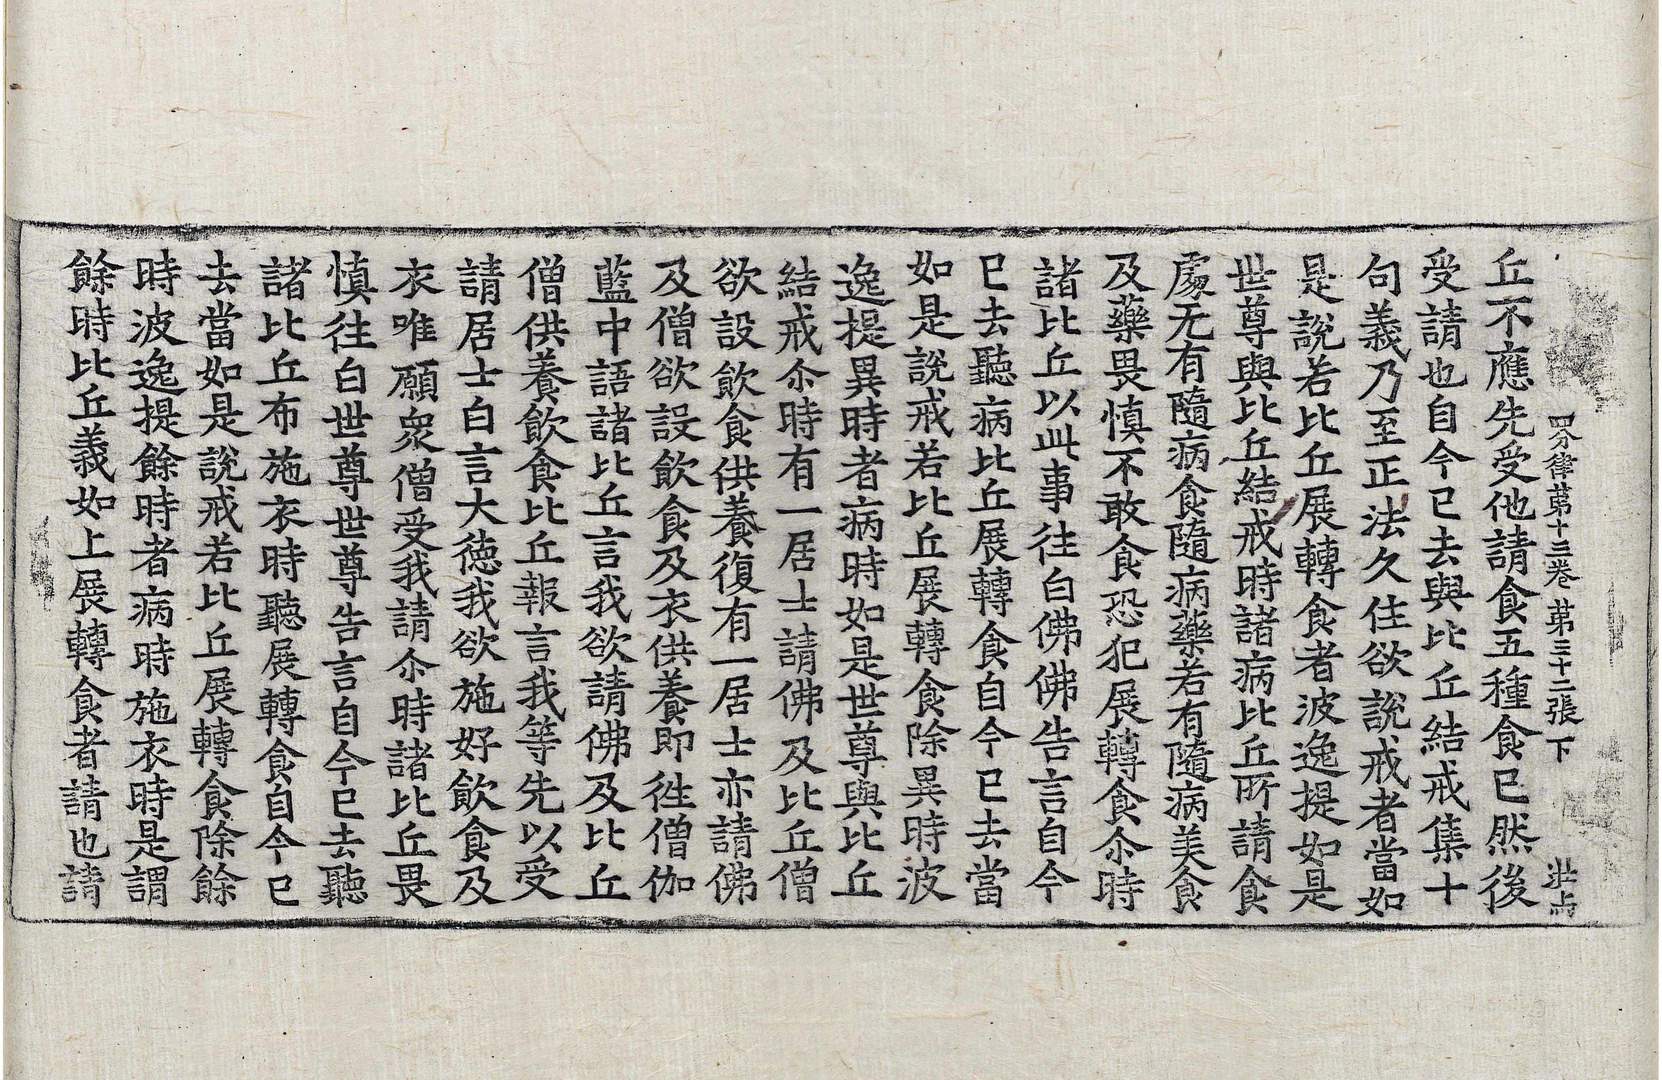 四分律第十三卷 第三十二張 下
丘不應先受他請食五種食已然後
受請也自今已去與比丘結戒集十
句義乃至正法久住欲說戒者當如
是說若比丘展轉食者波逸提如是
世尊與比丘結戒時諸病比丘所請食
處无有隨病食隨病藥若有隨病美食
及藥畏慎不敢食恐犯展轉食尒時
諸比丘以此事往白佛佛告言自今
已去聽病比丘展轉食自今已去當
如是說戒若比丘展轉食除異時波
逸提異時者病時如是世尊與比丘
結戒尒時有一居士請佛及比丘僧
欲設飲食供養復有一居士亦請佛
及僧欲設飲食及衣供養即徃僧伽
藍中語諸比丘言我欲請佛及比丘
僧供養飲食比丘報言我等先以受
請居士白言大德我欲施好飲食及
衣唯願衆僧受我請尒時諸比丘畏
慎往白世尊世尊告言自今已去聽
諸比丘布施衣時聽展轉食自今已
去當如是說戒若比丘展轉食除餘
時波逸提餘時者病時施衣時是謂
餘時比丘義如上展轉食者請也請